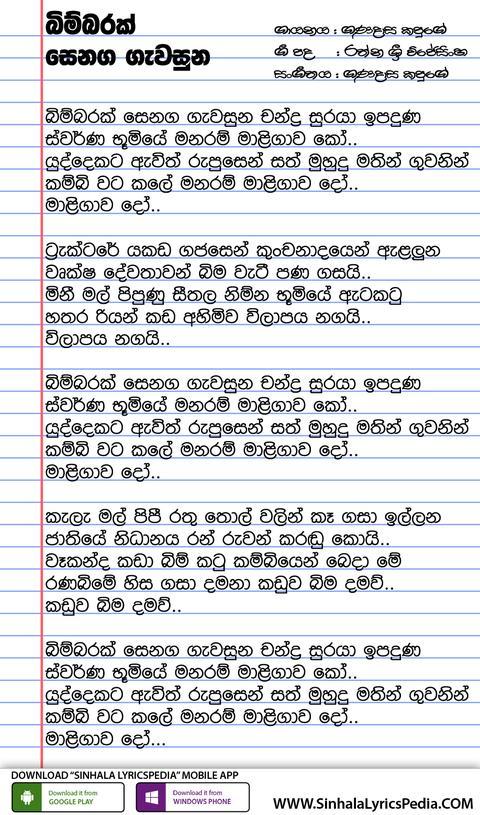 බිම්බරක්
සෙනග ගැවසුන
ගායනය : ගුණදාස කපුගේ
ගී පද : රත්න ශ්‍රී විජේසිංහ
සංගීතය : ගුණදාස කපුගේ
බිම්බරක් සෙනග ගැවසුන චන්ද්‍ර සුරයා ඉපදුණ
ස්වර්ණ භූමියේ මනරම් මාළිගාව කෝ..
යුද්දෙකට ඇවිත් රුපුසෙන් සත් මුහුදු මතින් ගුවනින්
කම්බි වට කලේ මනරම් මාළිගාව දෝ..
මාළිගාව දෝ..
ට්‍රැක්ටරේ යකඩ ගජසෙන් කුංචනාදයෙන් ඇළලුන
වෘක්ෂ දේවතාවන් බිම වැටී පණ ගසයි..
මිනී මල් පිපුණු සීතල නිම්න භූමියේ ඇටකටු
හතර රියන් කඩ අහිමිව විලාපය නගයි..
විලාපය නගයි..
බිම්බරක් සෙනග ගැවසුන චන්ද්‍ර සුරයා ඉපදුණ
ස්වර්ණ භූමියේ මනරම් මාළිගාව කෝ..
යුද්දෙකට ඇවිත් රුපුසෙන් සත් මුහුදු මතින් ගුවනින්
කම්බි වට කලේ මනරම් මාළිගාව දෝ..
මාළිගාව දෝ..
කැලෑ මල් පිපී රතු තොල් වලින් කෑ ගසා ඉල්ලන
ජාතියේ නිධානය රන් රුවන් කරඬු කොයි..
වෑකන්ද කඩා බිම් කටු කම්බියෙන් බෙදා මේ
රණබිමේ හිස ගසා දමනා කඩුව බිම දමව්..
කඩුව බිම දමව්..
බිම්බරක් සෙනග ගැවසුන චන්ද්‍ර සුරයා ඉපදුණ
ස්වර්ණ භූමියේ මනරම් මාළිගාව කෝ..
යුද්දෙකට ඇවිත් රුපුසෙන් සත් මුහුදු මතින් ගුවනින්
කම්බි වට කලේ මනරම් මාළිගාව දෝ..
මාළිගාව දෝ...
DOWNLOAD "SINHALA LYRICSPEDIA" MOBILE APP
Download it from
GOOGLE PLAY
Download it from
WINDOWS PHONE
WWW.SinhalaLyricsPedia.COM